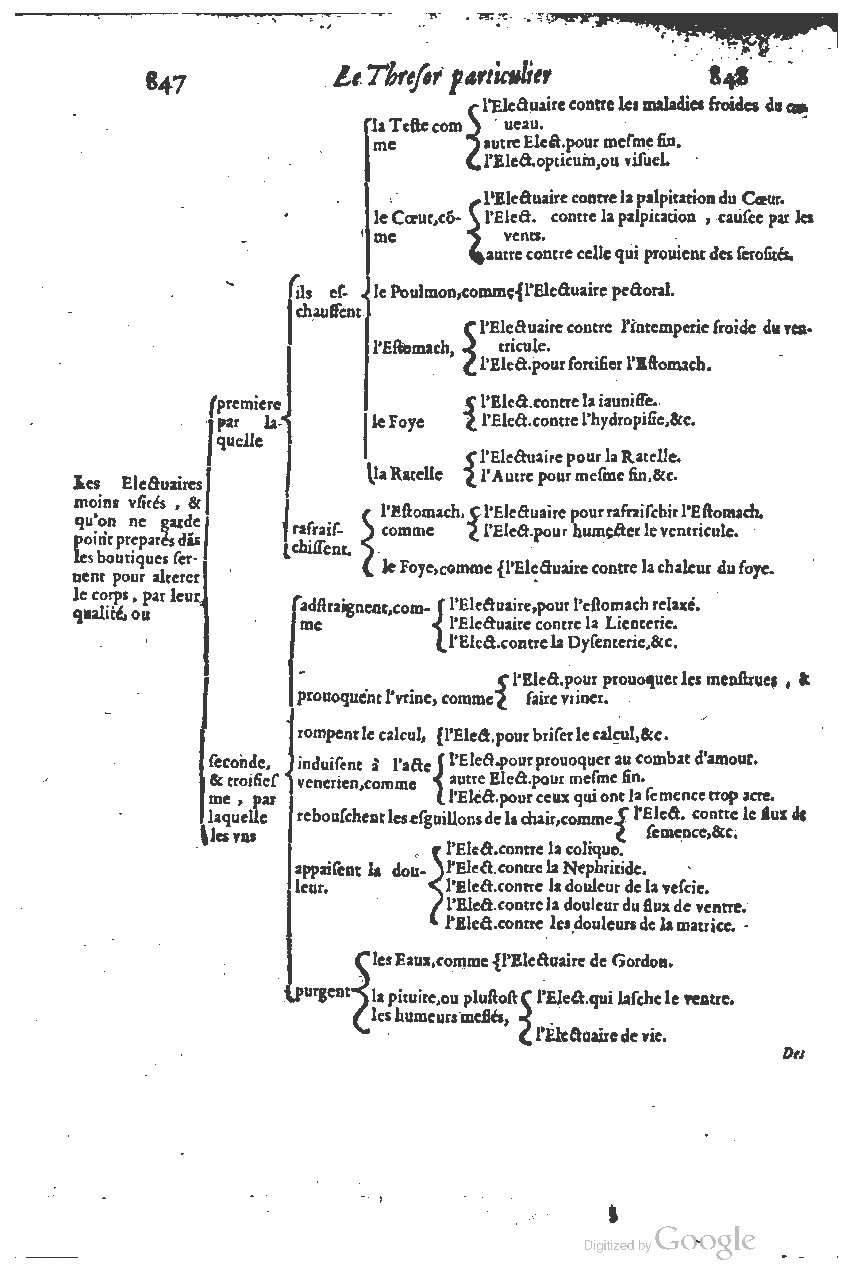 847 Le Threſor particulier 848
l'Electuaire contre les maladies froides du cer-
la Teſte com ueau.
me autre Elect.pour meſme fin.
l'Elect.opticum,ou viſuel.
l'Electuaire contre la palpitation du Cœur.
le Cœur,cõ- l'Elect. contre la palpitation , cauſée par les
me vents.
autre contre celle qui prouient des ſeroſités.
ils eſ- le Poulmon,comme{l'Electuaire pectoral.
chauffent
l'Electuaire contre l'intemperie froide du ven-
l'Eſtomach, tricule.
l'Elect.pour fortifier l'Eſtomach.
premiere l'Elect.contre la iauniſſe.
par la- le Foye l'Elect.contre l'hydropiſie,&c.
quelle
l'Electuaire pour la Ratelle.
la Ratelle l'Autre pour meſme fin,&c.
Les Electuaires
moins vſités , &
qu'on ne garde
point preparés dãs
les boutiques ſer-
uent pour alterer
le corps , par leur
qualité, ou
l'Eſtomach, l'Electuaire pour rafraiſchir l'Eſtomach.
rafraiſ- comme l'Elect.pour humecter le ventricule.
chiſſent.
le Foye,comme {l'Electuaire contre la chaleur du foye.
adſtraignent,com- l'Electuaire,pour l'eſtomach relaxé.
me l'Electuaire contre la Lienterie.
l'Elect.contre la Dyſenterie,&c.
l'Elect.pour prouoquer les menſtrues , &
prouoquent l'vrine, comme faire vriner.
rompent le calcul, {l'Elect,pour briſer le calcul,&c.
ſeconde, induiſent à l'acte l'Elect.pour prouoquer au combat d'amour.
& troiſieſ venerien,comme autre Elect.pour meſme fin.
me , par l'Elect.pour ceux qui ont la ſemence trop acre.
laquelle rebouſchent les eſguillons de la chair,comme l'Elect. contre le flux de
les vns ſemence,&c.
l'Elect.contre la colique.
appaiſent la dou- l'Elect.contre la Nephritide.
leur. l'Elect.contre la douleur de la veſcie.
l'Elect.contre la douleur du flux de ventre.
l'Elect.contre les douleurs de la matrice.
les Eaux,comme {l'Electuaire de Gordon.
purgent la pituite,ou pluſtoſt l'Elect.qui laſche le ventre.
les humeurs meſlés,
l'Electuaire de vie.
Des
Digitized by Google